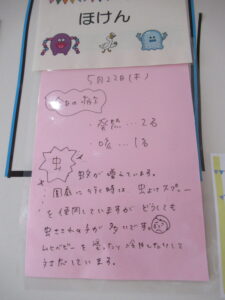 ほけん
5月22日(木)
今日の病気
・発熱…2名
・咳…1名
虫
蚊が増えています。
園庭に行く時は、虫よけスプレー
を使用していますが どうしても
虫さされの子が多いです。
ムヒベビーを塗ったり冷やしたりして
対応しています。